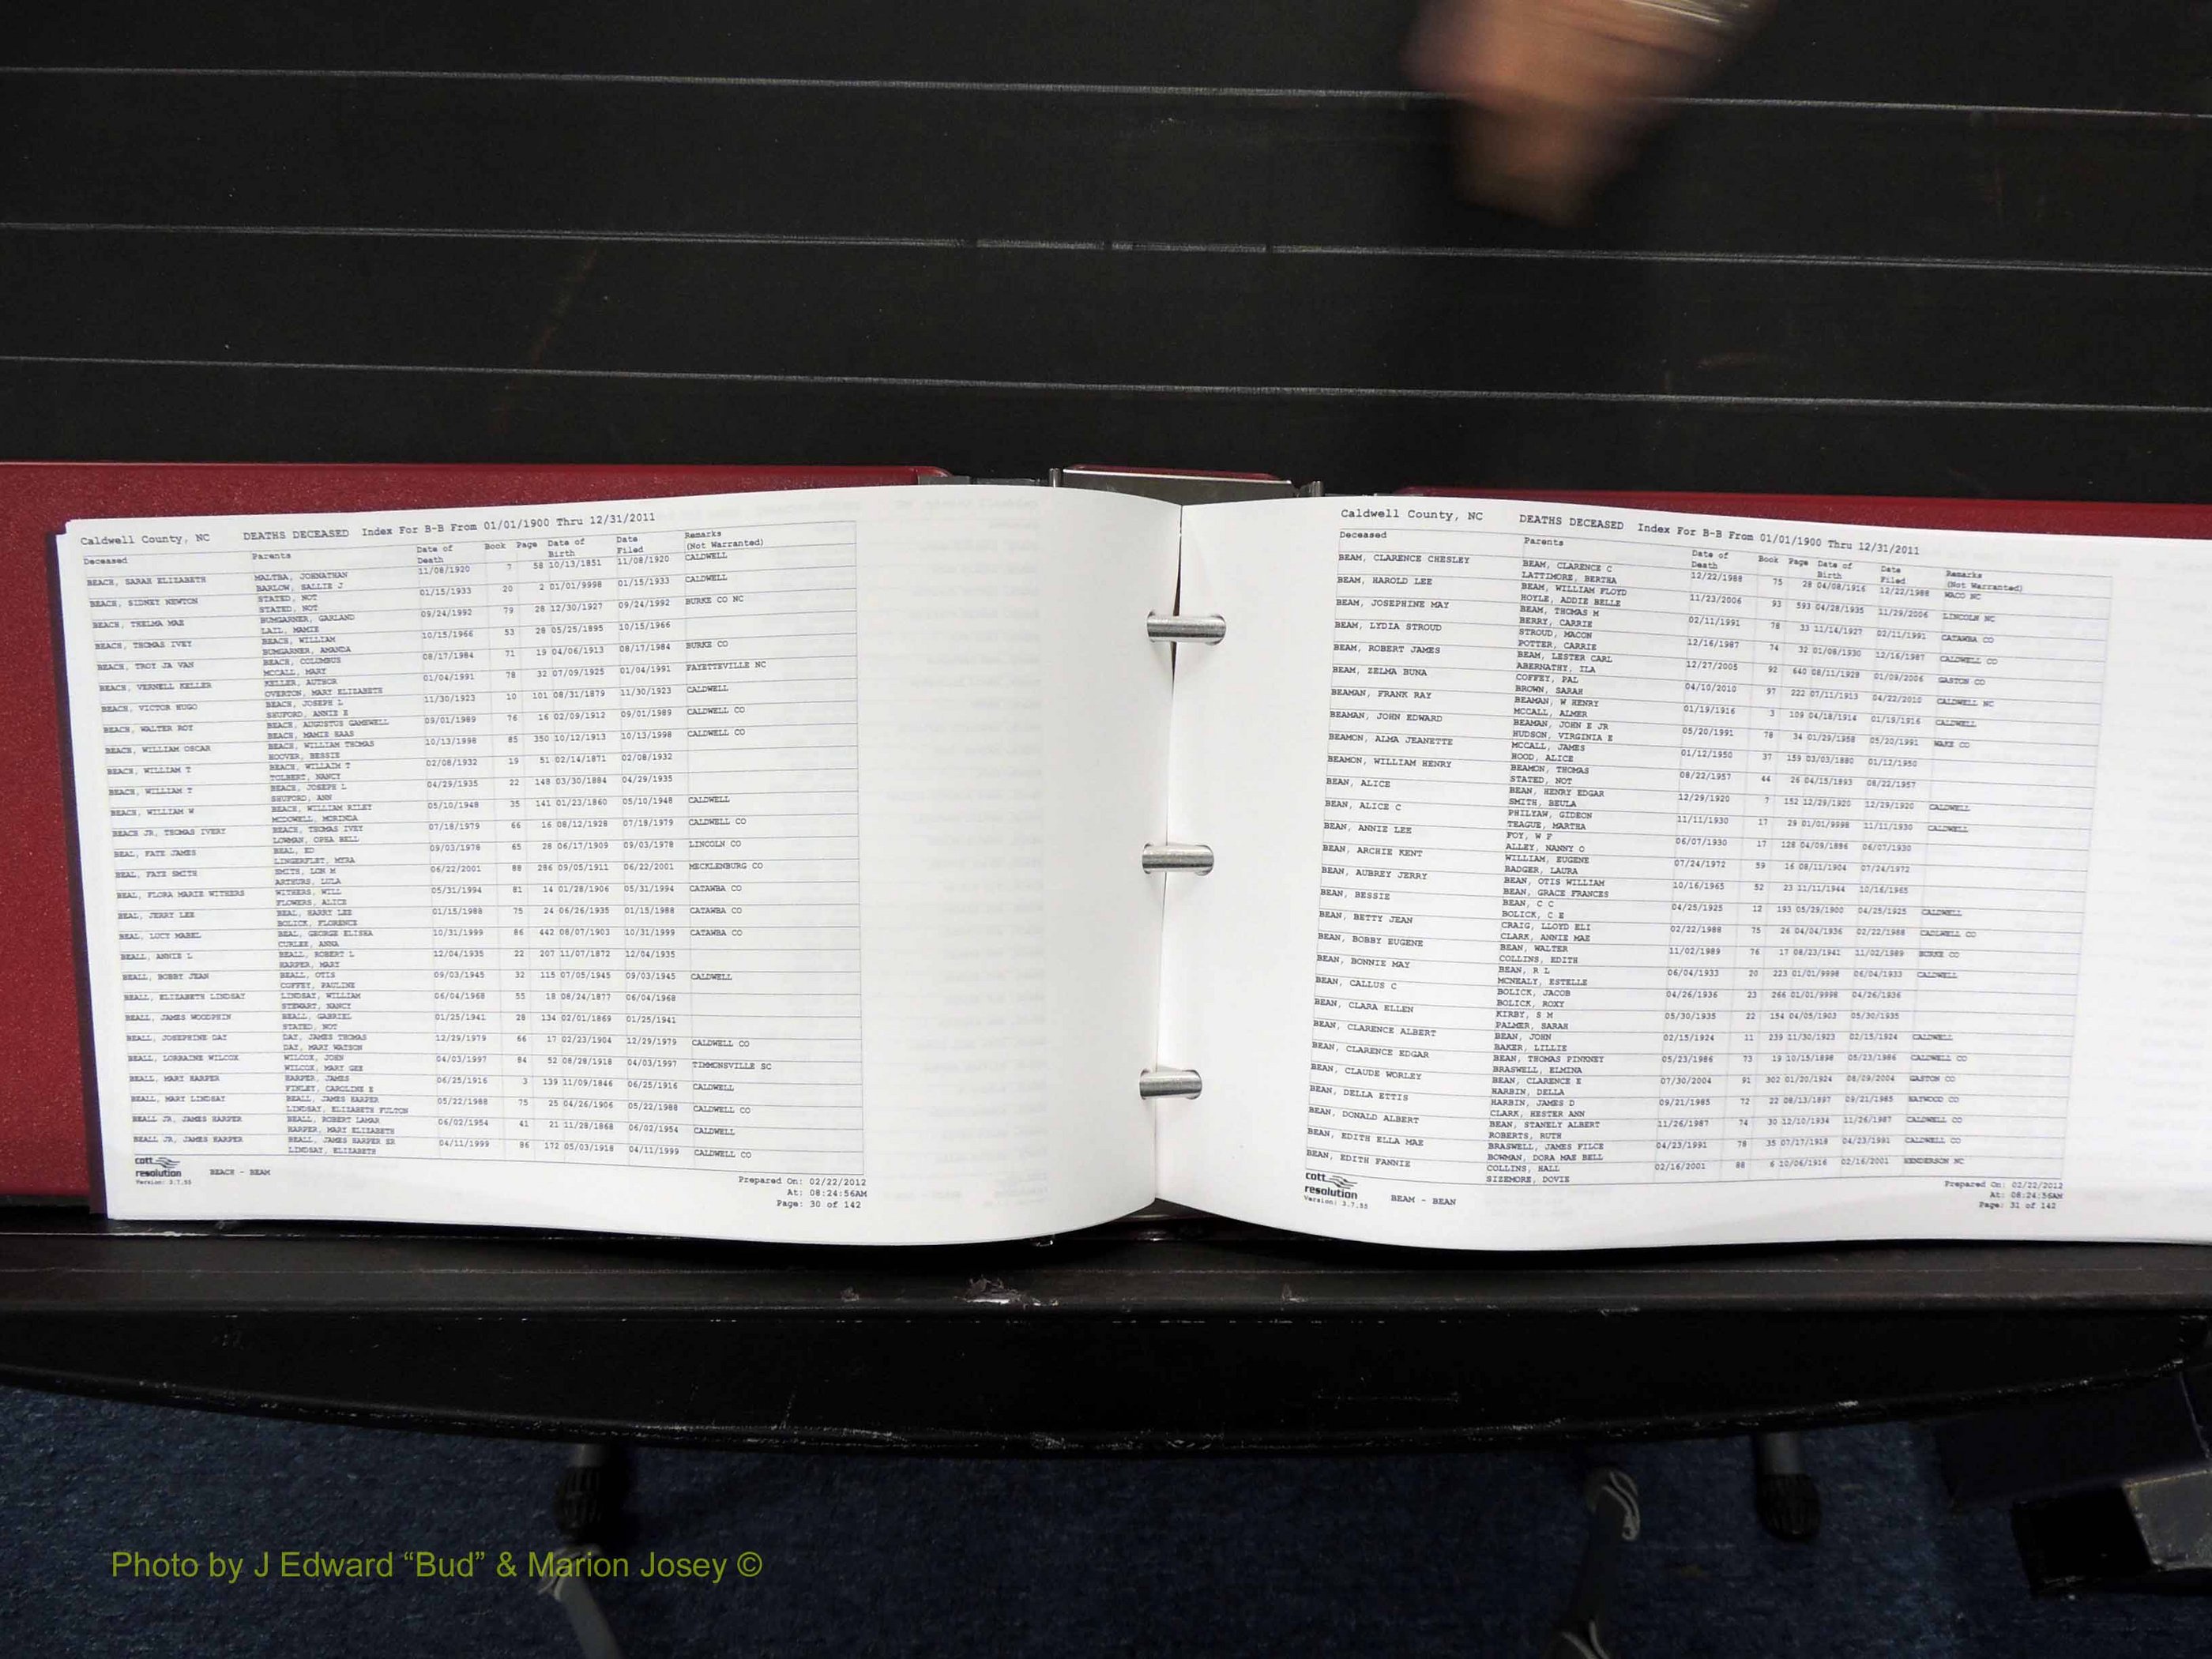 Caldwell County, NC DEATHS DECEASED Index For B-B From 01/01/1900 Thru 12/31/2011
Deceased Parents Date of Death Book Page Date of Birth Date Filed Remarks (Not Warranted)
BEACH, SARAH ELIZABETH MALTBA, JOHNATHAN 11/08/1920 7 58 10/13/1851 11/08/1920 CALDWELL
BARLOW, SALLIE J
BEACH, SIDNEY NEWTON STATED, NOT 01/15/1933 20 2 01/01/9998 01/15/1933 CALDWELL
STATED, NOT
BEACH, THELMA MAE BUMGARNER, GARLAND 09/24/1992 79 28 12/30/1927 09/24/1992 BURKE CO NC
LAIL, MAMIE
BEACH, THOMAS IVEY BEACH, WILLIAM 10/15/1966 53 28 05/25/1895 10/15/1966
BUMGARNER, AMANDA
BEACH, TROY JA VAN BEACH, COLUMBUS 08/17/1984 71 19 04/06/1913 08/17/1984 BURKE CO
MCCALL, MARY
BEACH, VERNELL KELLER KELLER, AUTHOR 01/04/1991 78 32 07/09/1925 01/04/1991 FAYETTEVILLE NC
OVERTON, MARY ELIZABETH
BEACH, VICTOR HUGO BEACH, JOSEPH L 11/30/1923 10 101 08/31/1879 11/30/1923 CALDWELL
SHUFORD, ANNIE E
BEACH, WALTER ROY BEACH, AUGUSTUS GAMEWELL 09/01/1989 76 16 02/09/1912 09/01/1989 CALDWELL CO
BEACH, MAMIE HAAS
BEACH, WILLIAM OSCAR BEACH, WILLIAM THOMAS 10/13/1998 85 350 10/12/1913 10/13/1998 CALDWELL CO
HOOVER, BESSIE
BEACH, WILLIAM T BEACH, WILLAIM T 02/08/1932 19 51 02/14/1871 02/08/1932
TOLBERT, NANCY
BEACH, WILLIAM T BEACH, JOSEPH L 04/29/1935 22 148 03/30/1884 04/29/1935
SHUFORD, ANN
BEACH, WILLIAM W BEACH, WILLIAM RILEY 05/10/1948 35 141 01/23/1860 05/10/1948 CALDWELL
MCDOWELL, MORINDA
BEACH JR, THOMAS IVERY BEACH, THOMAS IVEY 07/18/1979 66 16 08/12/1928 07/18/1979 CALDWELL CO
LOWMAN, OPHA BELL
BEAL, FATE JAMES BEAL, ED 09/03/1978 65 28 06/17/1909 09/03/1978 LINCOLN CO
LINGERFLET, MYRA
BEAL, FAYE SMITH SMITH, LON M 06/22/2001 88 286 09/05/1911 06/22/2001 MECKLENBURG CO
ARTHURS, LULA
BEAL, FLORA MARIE WITHERS WITHERS, WILL 05/31/1994 81 14 01/28/1906 05/31/1994 CATAWBA CO
FLOWERS, ALICE
BEAL, JERRY LEE BEAL, HARRY LEE 01/15/1988 75 24 06/26/1935 01/15/1988 CATAWBA CO
BOLICK, FLORENCE
BEAL, LUCY MABEL BEAL, GEORGE ELISHA 10/31/1999 86 442 08/07/1903 10/31/1999 CATAWBA CO
CURLEE, ANNA
BEALL, ANNIE L BEALL, ROBERT L 12/04/1935 22 207 11/07/1872 12/04/1935
HARPER, MARY
BEALL, BOBBY JEAN BEALL, OTIS 09/03/1945 32 115 07/05/1945 09/03/1945 CALDWELL
COFFEY, PAULINE
BEALL, ELIZABETH LINDSAY LINDSAY, WILLIAM 06/04/1968 55 18 08/24/1877 06/04/1968
STEWART, NANCY
BEALL, JAMES WOODPHIN BEALL, GABRIEL 01/25/1941 28 134 02/01/1869 01/25/1941
STATED, NOT
BEALL, JOSEPHINE DAY DAY, JAMES THOMAS 12/29/1979 66 17 02/23/1904 12/29/1979 CALDWELL CO
DAY, MARY WATSON
BEALL, LORRAINE WILCOX WILCOX, JOHN 04/03/1997 84 52 08/28/1918 04/03/1997 TIMMONSVILLE SC
WILCOX, MARY GEE
BEALL, MARY HARPER HARPER, JAMES 06/25/1916 3 139 11/09/1846 06/25/1916 CALDWELL
FINLEY, CAROLINE E
BEALL, MARY LINDSAY BEALL, JAMES HARPER 05/22/1988 75 25 04/26/1906 05/22/1988 CALDWELL CO
LINDSAY, ELIZABETH FULTON
BEALL JR, JAMES HARPER BEALL, ROBERT LAMAR 06/02/1954 41 21 11/28/1868 06/02/1954 CALDWELL
HARPER, MARY ELIZABETH
BEALL JR, JAMES HARPER BEALL, JAMES HARPER SR 04/11/1999 86 172 05/03/1918 04/11/1999 CALDWELL CO
LINDSAY, ELIZABETH
cott
resolution BEACH - BEAM
Version: 3.7.55
Prepared On: 02/22/2012
At: 08:24:56AM
Page: 30 of 142
Caldwell County, NC DEATHS DECEASED Index For B-B From 01/01/1900 Thru 12/31/2011
Deceased Parents Date of Death Book Page Date of Birth Date Filed Remarks (Not Warranted)
BEAM, CLARENCE CHESLEY BEAM, CLARENCE C 12/22/1988 75 28 04/08/1916 12/22/1988 WACO NC
LATTIMORE, BERTHA
BEAM, HAROLD LEE BEAM, WILLIAM FLOYD 11/23/2006 93 593 04/28/1935 11/29/2006 LINCOLN NC
HOYLE, ADDIE BELLE
BEAM, JOSEPHINE MAY BEAM, THOMAS M 02/11/1991 78 33 11/14/1927 02/11/1991 CATAWBA CO
BERRY, CARRIE
BEAM, LYDIA STROUD STROUD, MACON 12/16/1987 74 32 01/08/1930 12/16/1987 CALDWELL CO
POTTER, CARRIE
BEAM, ROBERT JAMES BEAM, LESTER CARL 12/27/2005 92 640 08/11/1928 01/09/2006 GASTON CO
ABERNATHY, ILA
BEAM, ZELMA BUNA COFFEY, PAL 04/10/2010 97 222 07/11/1913 04/22/2010 CALDWELL NC
BROWN, SARAH
BEAMAN, FRANK RAY BEAMAN, W HENRY 01/19/1916 3 109 04/18/1914 01/19/1916 CALDWELL
MCCALL, ALMER
BEAMAN, JOHN EDWARD BEAMAN, JOHN E JR 05/20/1991 78 34 01/29/1958 05/20/1991 WAKE CO
HUDSON, VIRGINIA E
BEAMON, ALMA JEANETTE MCCALL, JAMES 01/12/1950 37 159 03/03/1880 01/12/1950
HOOD, ALICE
BEAMON, WILLIAM HENRY BEAMON, THOMAS 08/22/1957 44 26 04/15/1893 08/22/1957
STATED, NOT
BEAN, ALICE BEAN, HENRY EDGAR 12/29/1920 7 152 12/29/1920 12/29/1920 CALDWELL
SMITH, BEULA
BEAN, ALICE C PHILYAW, GIDEON 11/11/1930 17 29 01/01/9998 11/11/1930 CALDWELL
TEAGUE, MARTHA
BEAN, ANNIE LEE FOY, W F 06/07/1930 17 128 04/09/1886 06/07/1930
ALLEY, NANNY C
BEAN, ARCHIE KENT WILLIAM, EUGENE 07/24/1972 59 16 08/11/1904 07/24/1972
BADGER, LAURA
BEAN, AUBREY JERRY BEAN, OTIS WILLIAM 10/16/1965 52 23 11/11/1944 10/16/1965
BEAN, GRACE FRANCES
BEAN, BESSIE BEAN, C C 04/25/1925 12 193 05/29/1900 04/25/1925 CALDWELL
BOLICK, C E
BEAN, BETTY JEAN CRAIG, LLOYD ELI 02/22/1988 75 26 04/04/1936 02/22/1988 CADLWELL CO
CLARK, ANNIE MAE
BEAN, BOBBY EUGENE BEAN, WALTER 11/02/1989 76 17 08/23/1941 11/02/1989 BURKE CO
COLLINS, EDITH
BEAN, BONNIE MAY BEAN, R L 06/04/1933 20 223 01/01/9998 06/04/1933 CALDWELL
MCNEALY, ESTELLE
BEAN, CALLUS C BOLICK, JACOB 04/26/1936 23 266 01/01/9998 04/26/1936
BOLICK, ROXY
BEAN, CLARA ELLEN KIRBY, S M 05/30/1935 22 154 04/05/1903 05/30/1935
PALMER, SARAH
BEAN, CLARENCE ALBERT BEAN, JOHN 02/15/1924 11 239 11/30/1923 02/15/1924 CALDWELL
BAKER, LILLIE
BEAN, CLARENCE EDGAR BEAN, THOMAS PINKNEY 05/23/1986 73 19 10/15/1898 05/23/1986 CALDWELL CO
BRASWELL, ELMINA
BEAN, CLAUDE WORLEY BEAN, CLARENCE E 07/30/2004 91 302 01/20/1924 08/09/2004 GASTON CO
HARBIN, DELLA
BEAN, DELLA ETTIS HARBIN, JAMES D 09/21/1985 72 22 08/13/1897 09/21/1985 HAYWOOD CO
CLARK, HESTER ANN
BEAN, DONALD ALBERT BEAN, STANELY ALBERT 11/26/1987 74 30 12/10/1934 11/26/1987 CALDWELL CO
ROBERTS, RUTH
BEAN, EDITH ELLA MAE BRASWELL, JAMES FILCE 04/23/1991 78 35 07/17/1918 04/23/1991 CALDWELL CO
BOWMAN, DORA MAE BELL
BEAN, EDITH FANNIE COLLINS, HALL 02/16/2001 88 6 10/06/1916 02/16/2001 HENDERSON NC
SIZEMORE, DOVIE
cott
resolution BEAM - BEAN
Version: 3.7.55
Prepared On: 02/22/2012
At: 08:24:56AM
Page: 31 of 142
Photo by J Edward “Bud” & Marion Josey ©